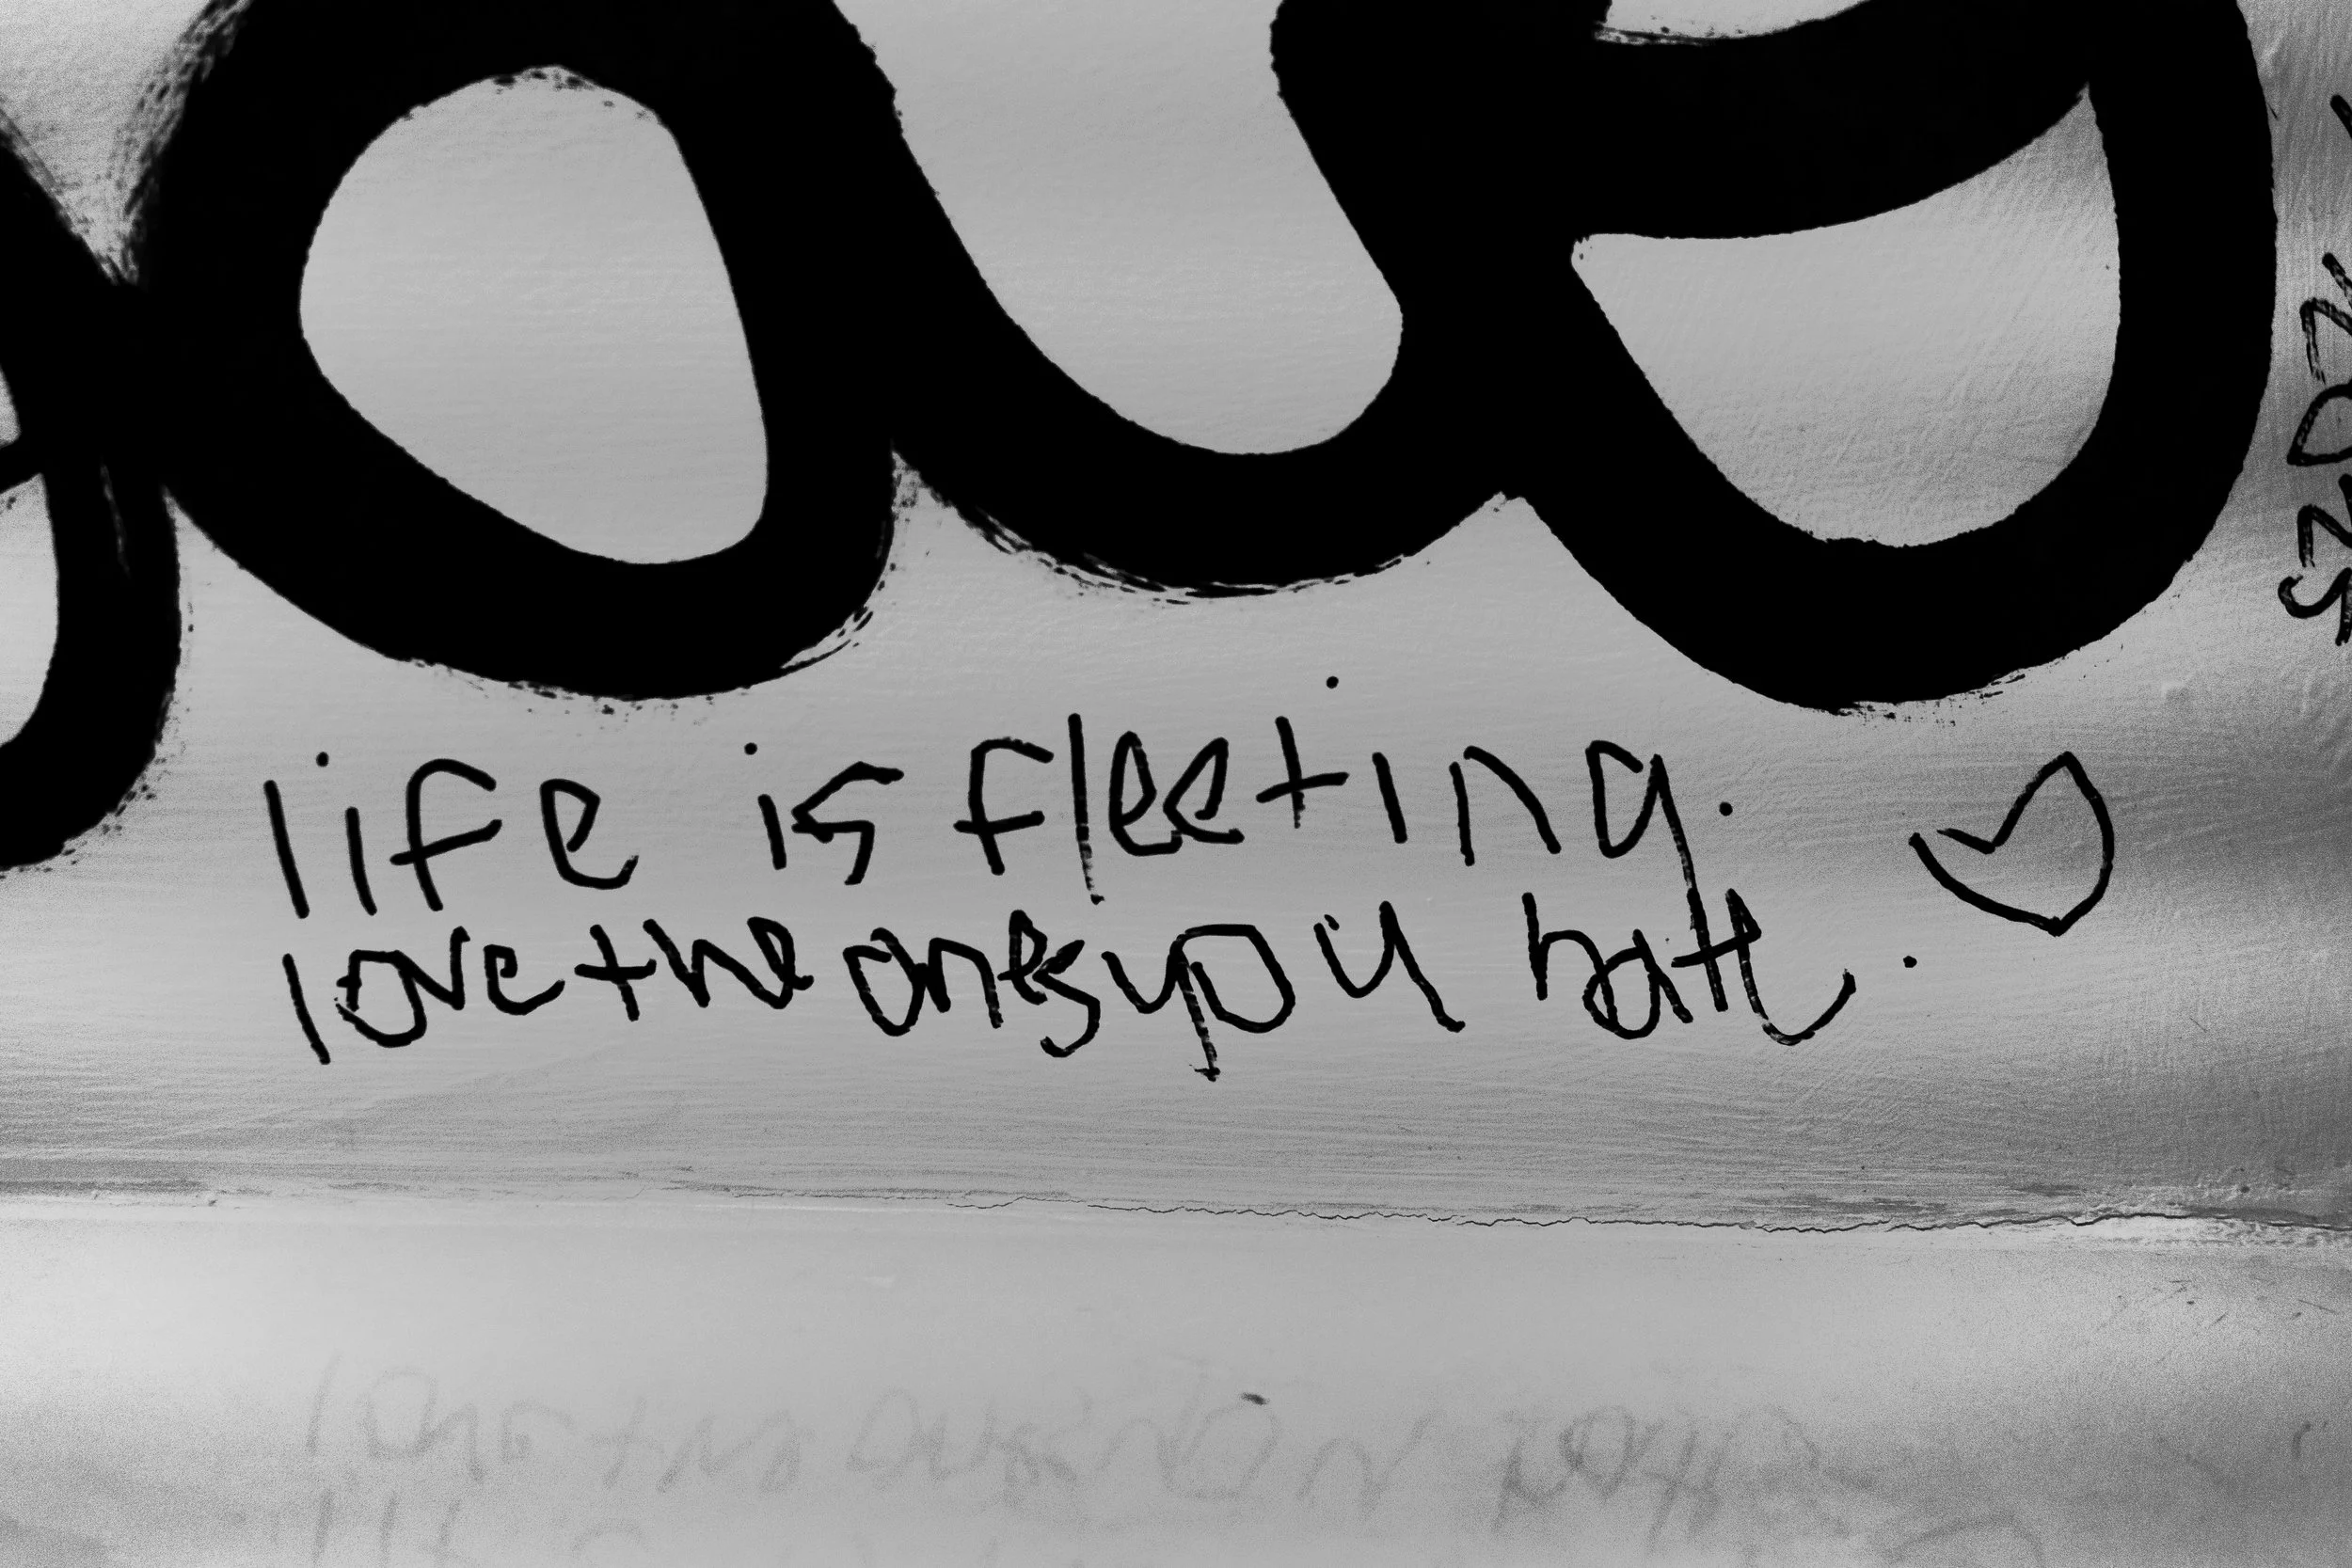 life is fleeting.
love the ones you hate.